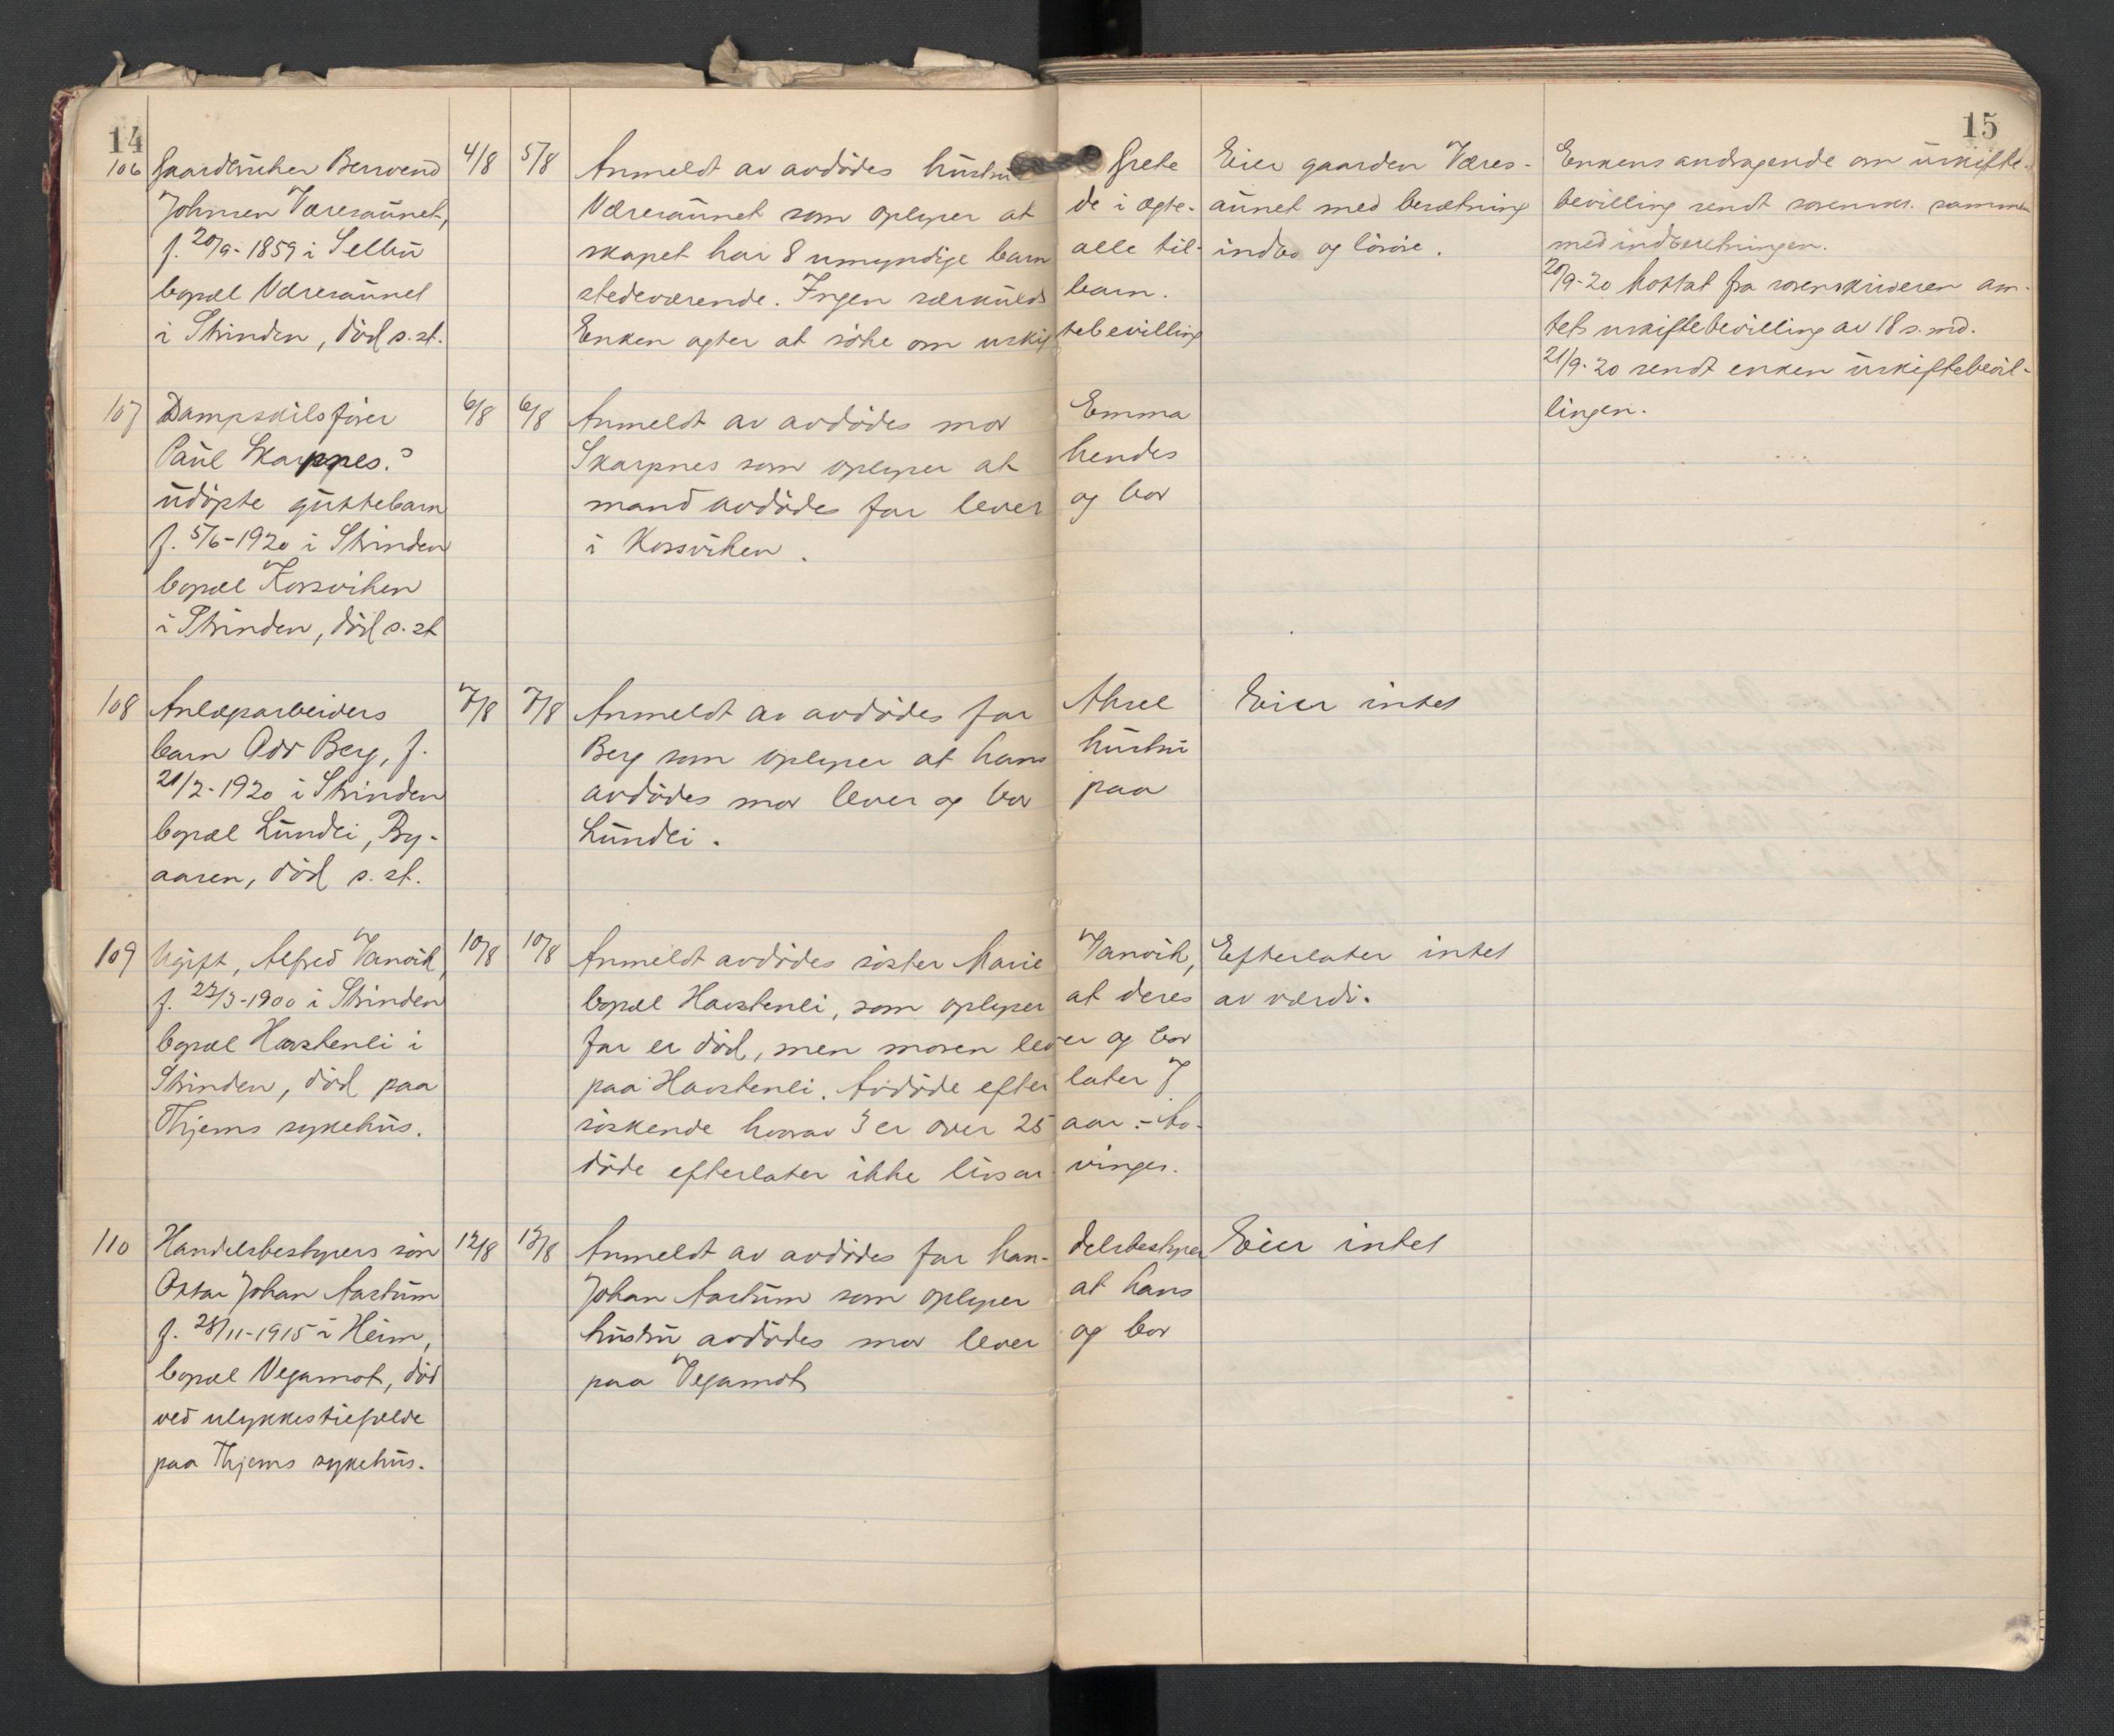 14
15
106 Gaardbruker Berwend
Johnsen Væresaunet,
f. 20/9-1859 i Selbu
bopæl Væresaunet
i Strinden, död s. st.
4/8
5/8
Anmeldt av avdödes hustru Grete
Væresaunet som oplyser at de i ægte-
skapet har 8 umyndige barn alle til-
stedeværende. Ingen særkulds barn.
Enken agter at söke om uskiftebevilling
Eier gaarden Væres-
aunet med besætning
indbo og lösöre.
Enkens andragende om uskifte-
bevilling sendt sorenskr. sammen
med indberetningen.
20/9-20 Mottat fra sorenskriveren am-
tets uskiftebevilling av 18 s. md.
21/9-20 sendt enken uskiftebevil-
lingen.
107 Dampskibsförer
Paul Skarpnes.s
udöpte guttebarn
f. 5/6-1920 i Strinden
bopæl Korsviken
i Strinden, död s. st
6/8
6/8
Anmeldt av avdödes mor Emma
Skarpnes som oplyser at hendes
mand avdödes far lever og bor
i Korsviken.
108 Anlægsarbeiders
barn Odd Berg, f.
21/2-1920 i Strinden
bopæl Lundli, By-
aasen, död s. st.
7/8
7/8
Anmeldt av avdödes far Aksel
Berg som oplyser at hans hustru
avdödes mor lever og bor paa
Lundli.
Eier intet
109 Ugift, Alfred Vanvik,
f. 22/3-1900 i Strinden
bopæl Havstenli i
Strinden, död paa
Thjems sykehus.
10/8
10/8
Anmeldt avdödes söster Marie Vanvik,
bopæl Havstenli, som oplyser at deres
far er död, men moren lever og bor
paa Havstenli. Avdöde efterlater 7
söskende hvorav 3 er over 25 aar. - Av-
döde efterlater ikke livsarvinger.
Efterlater intet
av værdi.
110 Handelsbestyrers sön
Ottar Johan Aastum
f. 28/11-1915 i Heim,
bopæl Vegamot, död
ved ulykkestilfælde
paa Thjems sykehus.
12/8
13/8
Anmeldt av avdödes far han-delsbestyrer
Johan Aastum som oplyser at hans
hustru avdödes mor lever og bor
paa Vegamot
Eier intet